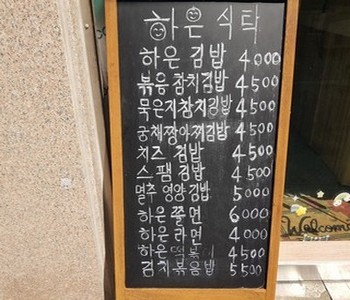 하은 식탁
하은 김밥 4000
볶음참치김밥 4500
묵은지참치김밥 4500
궁채장아찌김밥 4500
치즈 김밥 4500
스팸 김밥 4500
멸추 영양김밥 5000
하은쫄면 6000
하은라면 4000
하은 떡볶이 4500
김치볶음밥 5500
Welcome